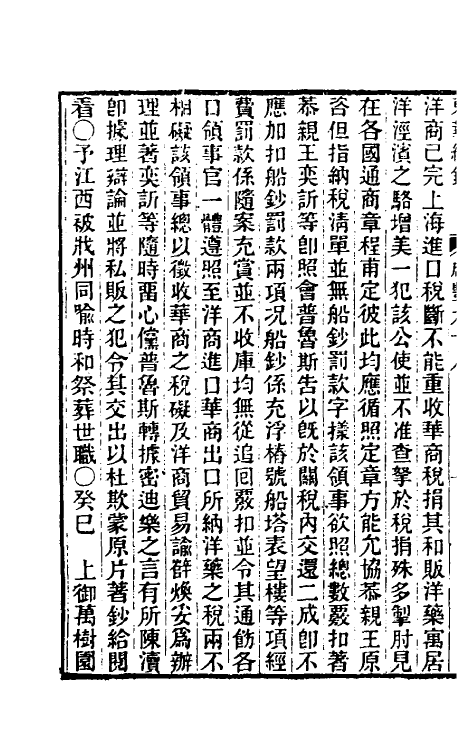 洋商已完上海進口稅斷不能重收華商稅捐其和販洋藥寓居
洋涇濱之駱增美一犯該公使並不准查拏於稅捐殊多掣肘見
在各國通商章程甫定彼此均應循照定章方能允協恭親王原
咨但指納稅清單並無船鈔罰款字㨾該領事欲照總數覈扣著
恭親王奕訢等卽照會普魯斯吿以旣於關稅內交還二成卽不
應加扣船鈔罰款兩項況船鈔係充浮樁號船塔表望樓等項經
費罰款係隨案充賞並不收庫均無從追回覈扣並令其通飭各
口領事官一體遵照至洋商進口華商出口所納洋藥之稅兩不
相礙該領事總以徵收華商之稅礙及洋商貿易諭辟煥妥爲辦
理並著奕訢等隨時畱心儻普魯斯轉據密迪樂之言有所陳瀆
卽據理辯論並將私販之犯令其交出以杜欺蒙原片著鈔給閱
看○予江西被戕州同喩時和祭葬世職○癸巳 上御萬樹園